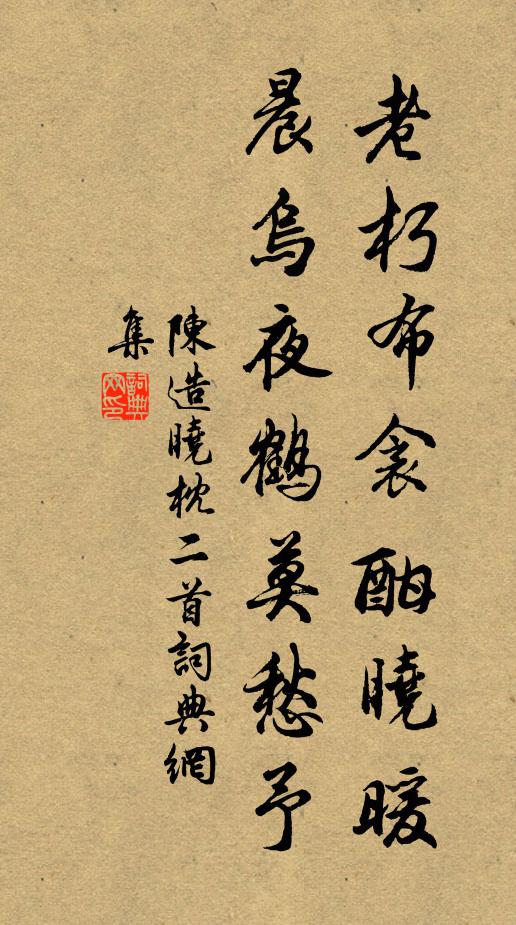 老朽布衾酣曉暖
晨烏夜鶴莫愁予
陳造曉枕二首詞典網
集
詞典網印